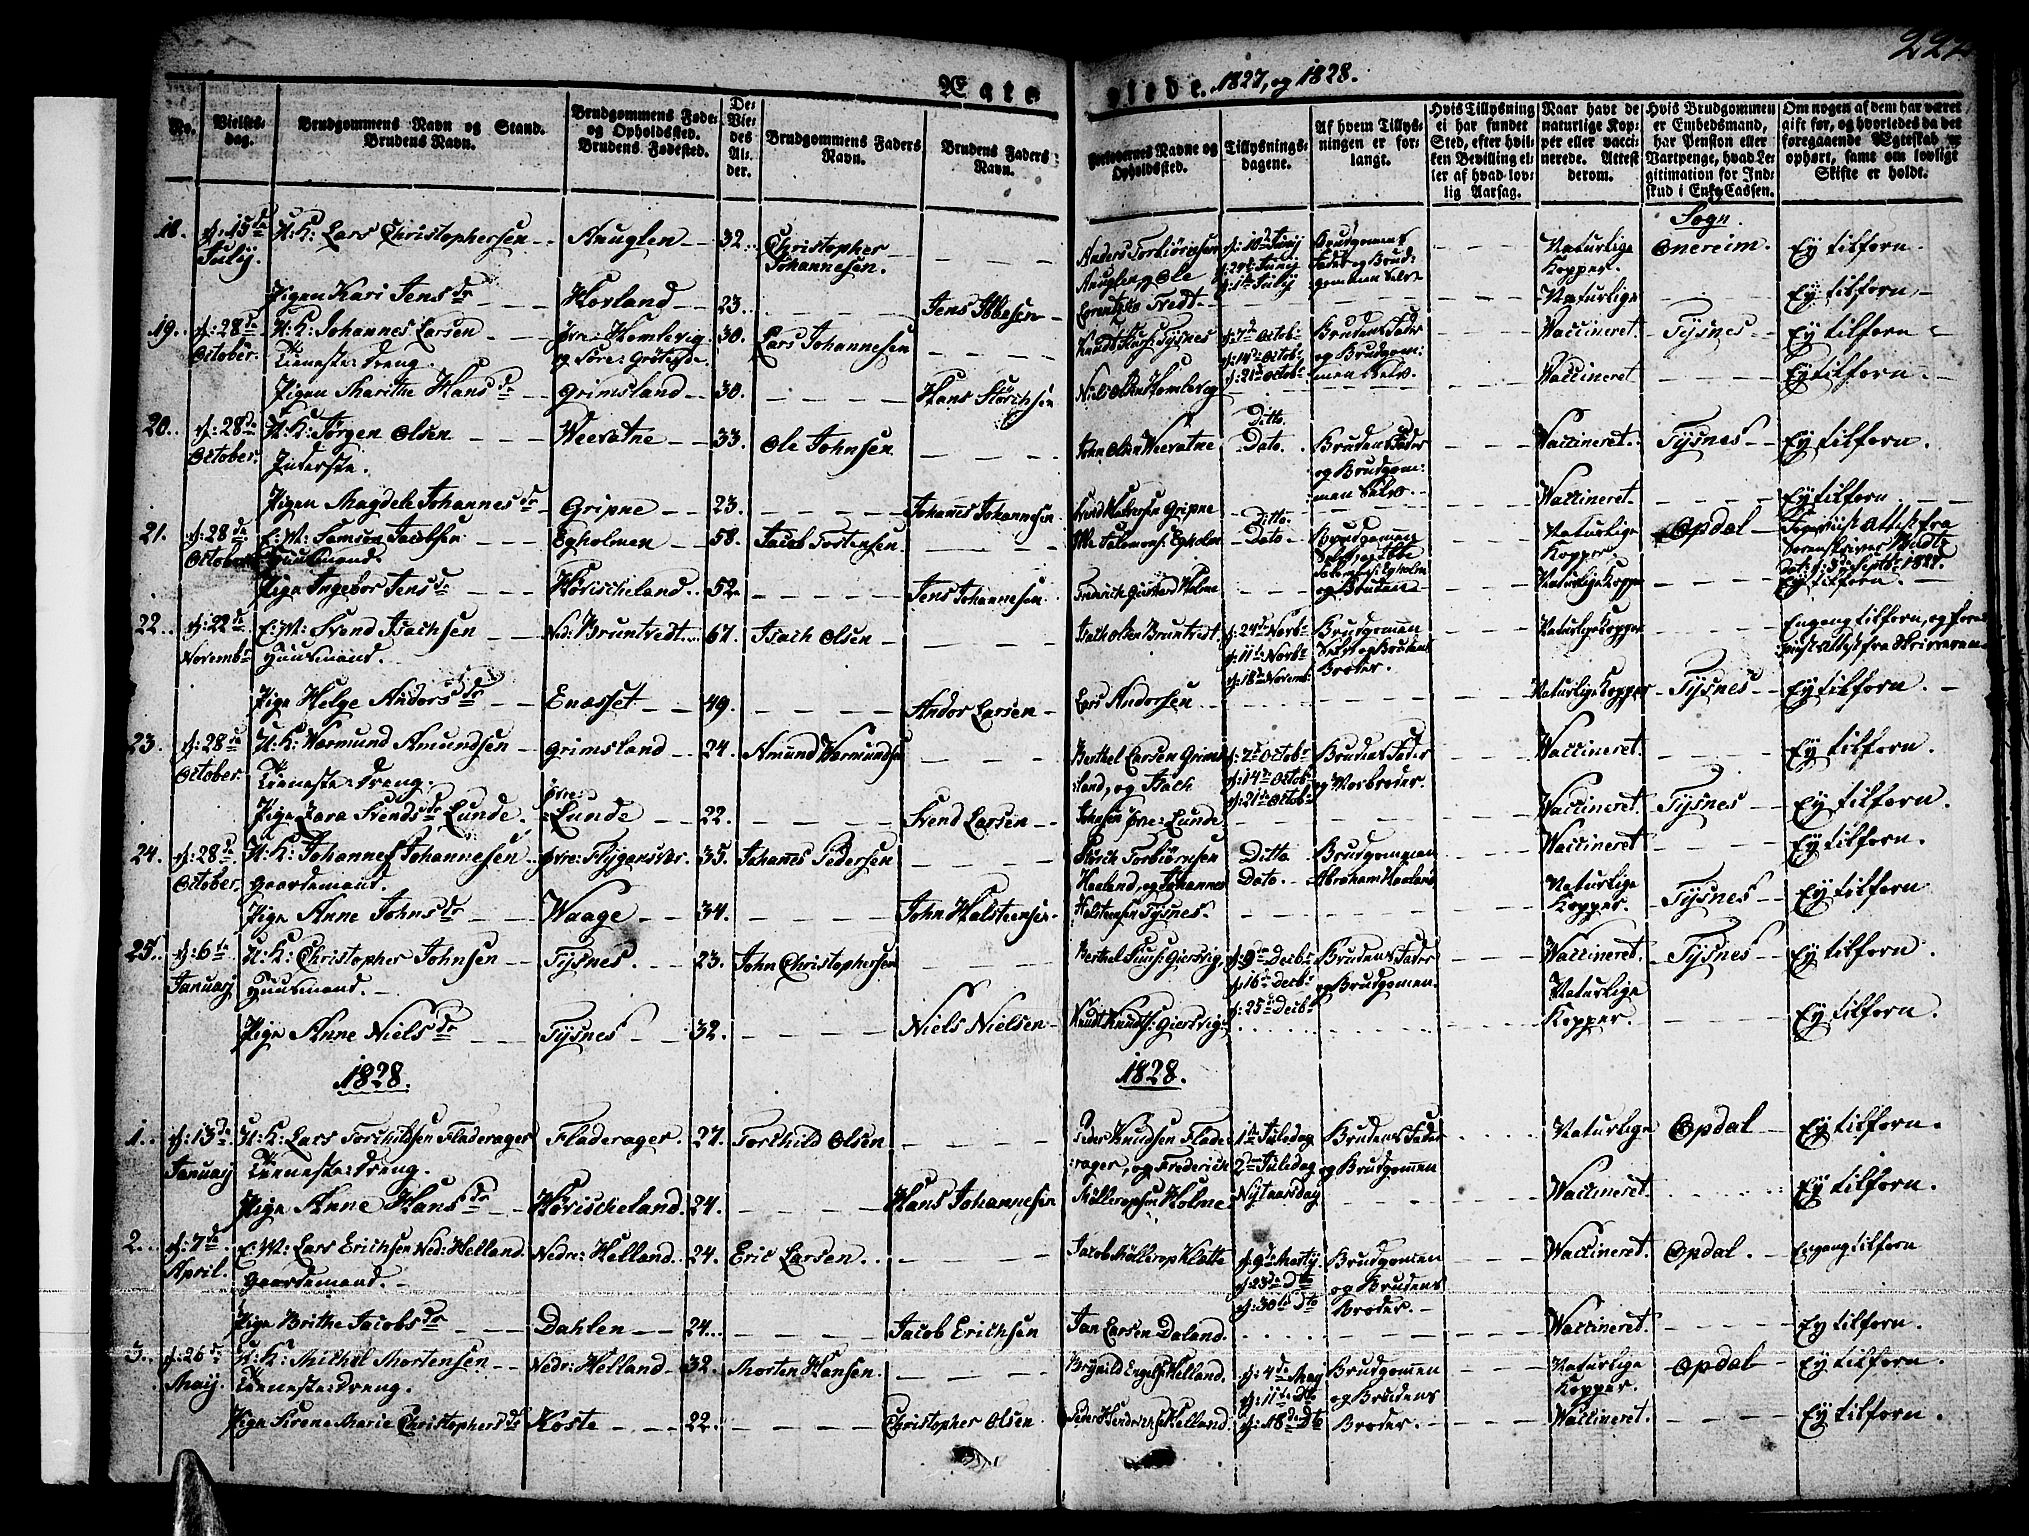 222
Ægte
viede. 1827, og 1828.
No.
Vielses-dag.
Brudgommens Navn og Stand. Brudens Navn.
Brudgommens Føde- og Opholdssted. Brudens Fødested.
De Vie-des Al-der.
Brudgommens Faders Navn.
Brudens Faders Navn.
Forlovernes Navne og Opholdssted.
Tillysnings-dagene.
Af hvem Tillysningen er forlangt.
Hvis Tillysning ei har fundet Sted, efter hvilken Bevilling eller af hvad lovlig Aarsag.
Naar havt de naturlige Kopper eller vaccinerede. Attest derom.
Hvis Brudgommen er Embedsmand, har Pension eller Vartpenge, hvad Legitimation for Indskud i EnkeCassen.
Om nogen af dem har været gift før, og hvorledes da det foregaaende Ægteskab er ophørt, samt om lovligt Skifte er holdt.
Sogn.
18. d: 15de Julij. U: K: Lars Christophersen Anuglen 32. Christopher Johannesen. Anders Torbiörnsen Anuglen, og Ole Brudgomens Fader og Brudgommen selv Naturlige Kopper. Onereim. Ey tilforn.
Pigen Kari Jensdr Hovland 23. Jens Ibbesen Tvedt Naturlige Ey tilforn.
19. d: 28de October. U: K: Johannes Larsen Tieneste Dreng. Øvre: Humlevig 30. Lars Johannesen Tysnes d: 7de Octobr d: 14de Octobr d: 21de Octobr Brudens Fader og Brudgommen selv. Vaccineret Tysnes Ey tilforn
Pigen Marithe Hansdr Grimsland 30. Hans Niels Olsen Humlevig Vaccineret Ey tilforn.
20. d: 28de October. U: K: Jørgen Olsen Inderste. Weevatne 33. Ole Johnsen John Olsen Weevatne Ditto Dato. Brudens Fader og Brudgommen selv. Vaccineret. Tysnes Ey tilforn.
Pigen Magdele Johannesdr Gripne 23. Johannes Johannesen Gripne Vaccineret. Ey tilforn
21. d: 28de October E: M: Jacobsen Huusmand Egholmen 58. Jacob Tortensen Egholm Ditto Dato Brudgommen og Bruden Naturlige Kopper. Opdal
Pige Ingebor Jensdr Hørischeland 52. Jens Johannesen Holme Naturlige Kopper Ey tilforn.
22. d: 22de Novembr E: M: Svend Isachsen Huusmand. Ned: Bruntvedt 67. Isach Olsen Isach Olsen Bruntvedt d: 11te Novbr d: 18de Novemb: Brudgommen selv og Brudens Broder. Naturlige Kopper Engang tilforn,
Pige Helge Andorsdr Enæsset 49. Andor Larsen Lars Andorsen Naturlige Kopper Tysnes Ey tilforn.
23. d: 28de October. U: K: Wermund Amundsen Tieneste Dreng. Grimsland 24. Amund Wermundsen Berthel Larsen Grimsland, og Isach d: 7de Octobr d: 14de Octobr d: 21de Octobr Brudens Fader og Morbroder. Vaccineret. Ey tilforn.
Pige Zara Svendsdr Lunde. Øvre: Lunde 22. Svend Larsen Johnsen Øvre: Lunde Vaccineret. Tysnes Ey tilforn.
24. d: 28de October. U: K: Johannes Johannesen Gaardemand. Øvre: Flygansvær. 35. Johannes Pedersen Torbiörnsen Haaland, og Johannes Ditto Dato. Brudgommen Abraham Haaland Vaccineret Ey tilforn.
Pige Anne Johnsdr Waage 34. John Halsteensen Halsteensen Tysnes. Naturlige Kopper. Tysnes Ey tilforn
25. d: 6te Januarj U: K: Christopher Johnsen Huusmand. Tysnes. 23. John Christophersen Berthel Giersvig, d: 9de Decbr d: 16de Decbr d: 25de Decbr Brudens Fader og Brudgomen. Vaccineret. Tysnes Ey tilforn.
Pige Anne Nielsdr Tysnes 32. Niels Nielsen Knudt Knudts: Giersvig Naturlige Kopper. Ey tilforn.
1828. 1828.
1. d: 13de Januarj U: K: Lars Torchildsen Fladerager Tieneste Dreng. Fladerager. 27. Torchild Olsen Peder Knudsen Fladerager, og Frederich 1ste Juledag 2den Juledag Nytaarsdag Brudens Fader og Brudgomen Naturlige Opdal Ey tilforn.
Pige Anne Hansdr Hørischeland. 24. Hans Johannesen Holme Vaccineret. Ey tilforn.
2. d: 7de April. E: M: Lars Erichsen Ned: Helland Gaardemand. Nedre: Helland. 24. Eric Larsen. Jacob Møllerop Kløtte d: 9de Martij. d: 23de Dto d: 30te Dto Brudgomen og Brudens Broder. Vaccineret. Opdal. Engang tilforn
Pige Brithe Jacobsdr Dahlen 24. Jacob Erichsen Jan Larsen Daland. Vaccineret. Ey tilforn.
3. d: 26de Maij. U: K: Michel Mortensen Tieneste Dreng. Nedr: Helland 32. Morten Hansen. Helland. d: 4de Maij d: 11te Dto d: 18de Dto Brudgomen og Brudens Broder. Naturlige Kopper. Opdal Ey tilforn.
Pige Sirene Marie Christophersdr Koste 22. Christopher Olsen Peder Helland. Vaccineret. Ey tilforn.